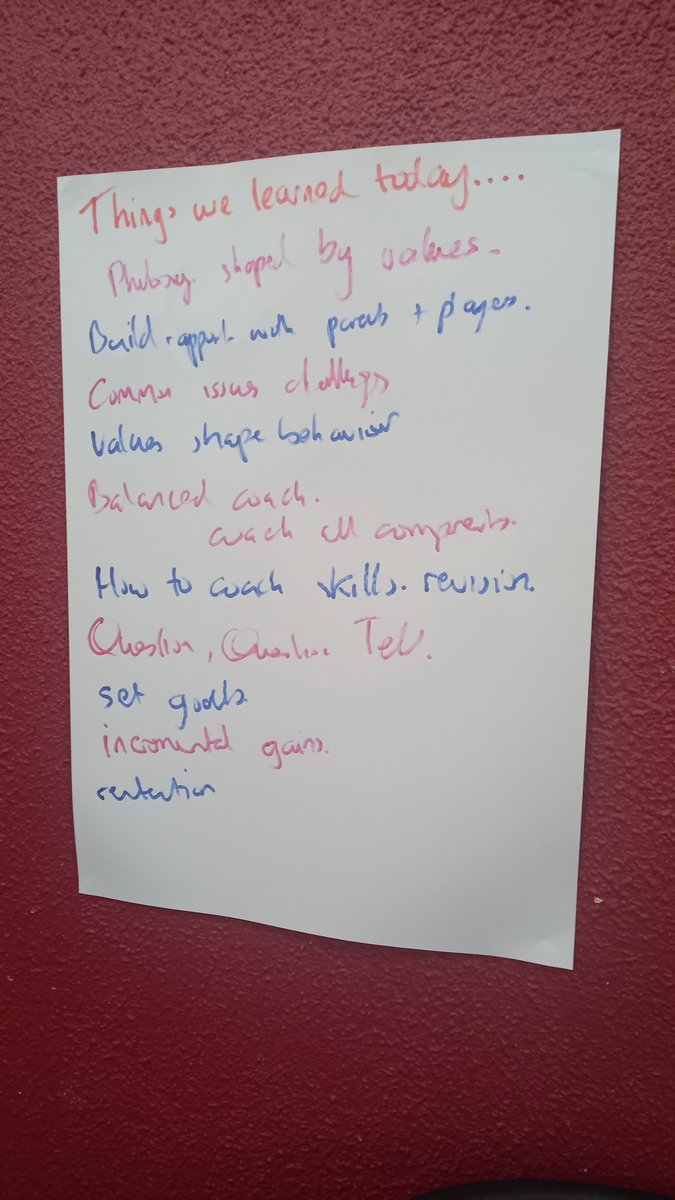 Things we learned today....
shaped by values.
Build rapport with parents + players.
Common issues challenges
Values shape behaviour
Balanced coach.
coach all components.
How to coach skills. revision.
Question, Question Tell.
set goals.
incremental gains.
rentention